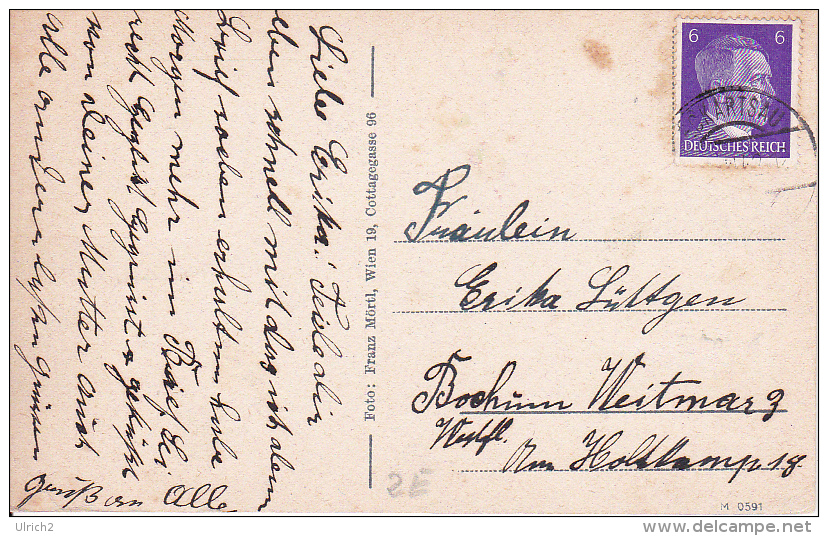 Liebe Erika! Teile dir
eben schnell mit das ich deinen
Brief soeben erhalten habe
Morgen mehr im Brief. Sei
recht herzlichst gegrüßt & geküßt
von deiner Mutter auch
alle andern lassen grüssen
Gruß an Alle
Foto: Franz Mörtl, Wien 19, Cottagegasse 96
6 6
DEUTSCHES REICH
Fräulein
Erika Lüttgen
Bochum Weitmar 3
Westfl.
Am Holtkamp 18
2E
M 0591
Ulrich2
www.delcampe.net